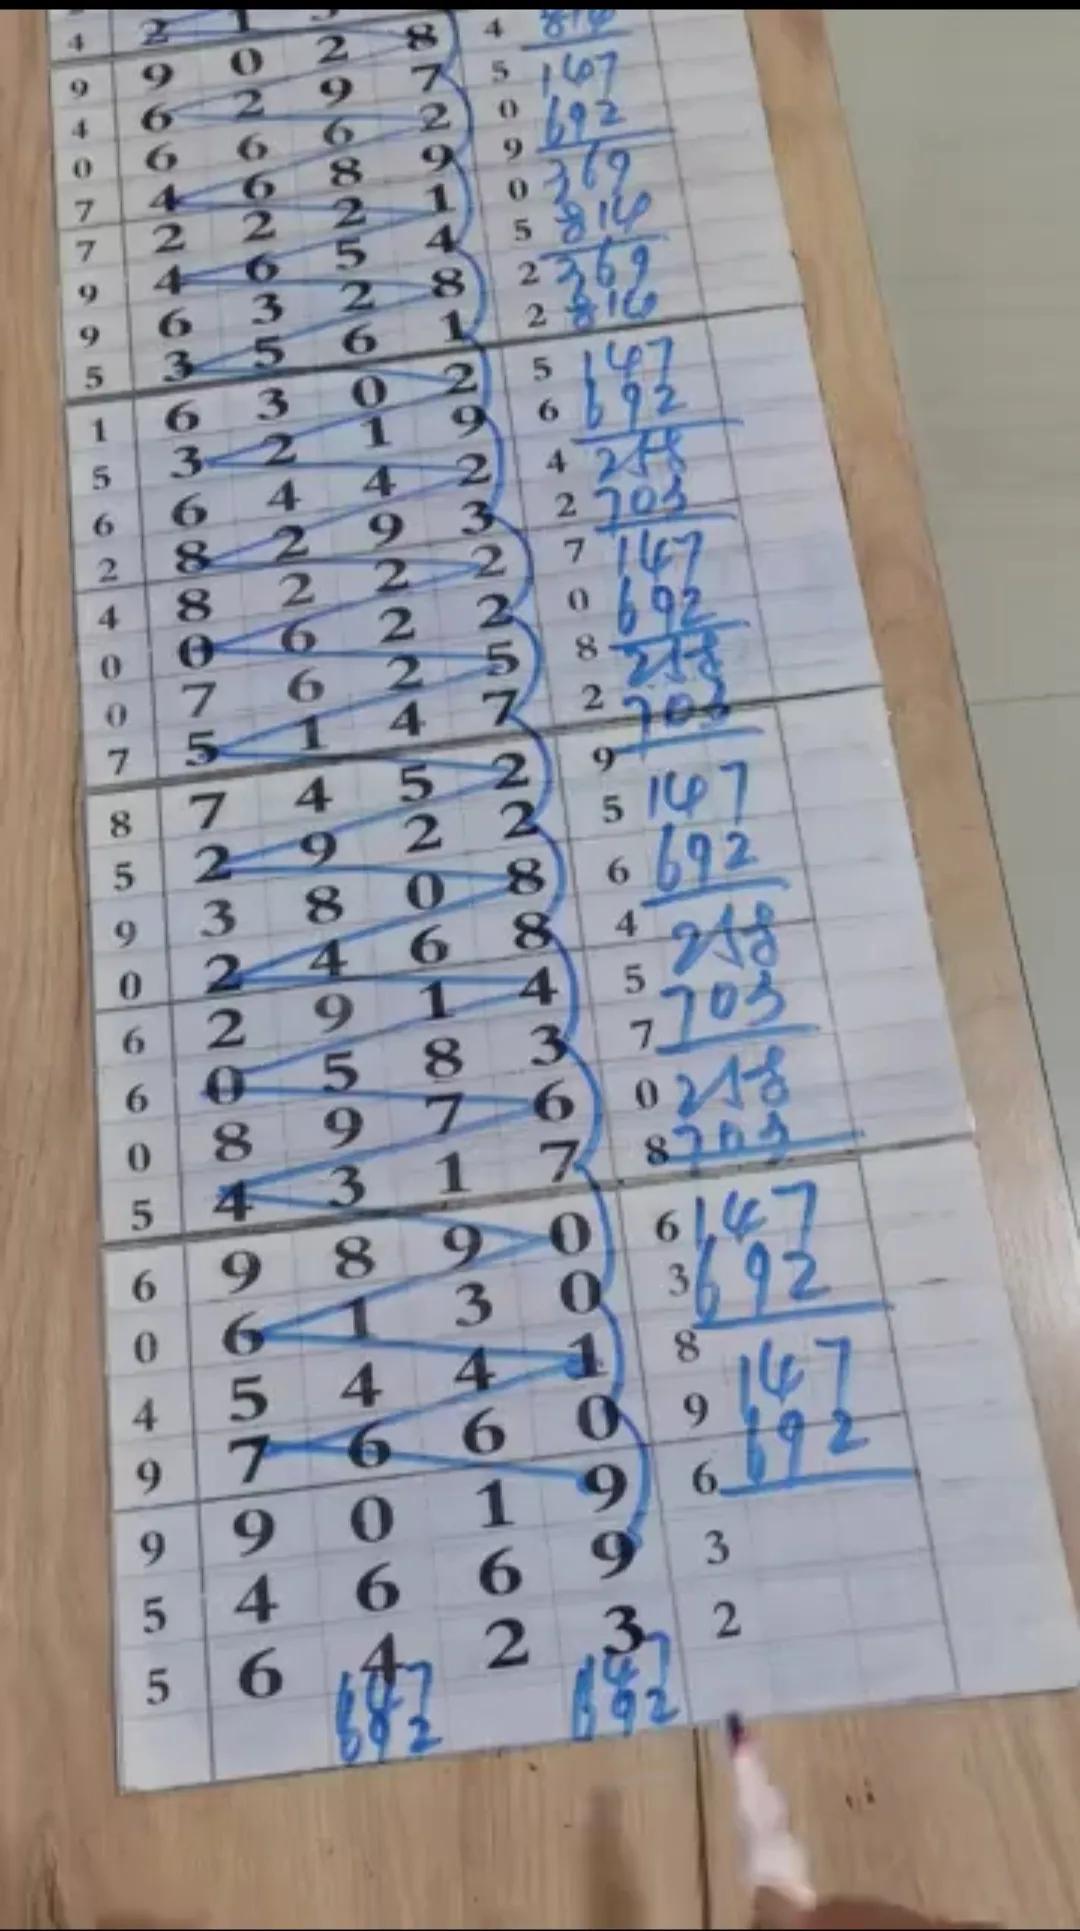 4 2 1 8 4 814
9 9 0 2 7 5 147
4 6 2 9 2 0 692
0 6 6 6 9 9 369
7 4 6 8 1 0 814
7 2 2 2 4 5 369
9 4 6 5 8 2 814
9 6 3 2 1 2
5 3 5 6 2 5 147
1 6 3 0 9 6 692
5 3 2 1 2 4 258
6 6 4 4 3 2 703
2 8 2 9 2 7 147
4 8 2 2 2 0 692
0 0 6 2 5 8 258
0 7 6 2 7 2 703
7 5 1 4 2 9
8 7 4 5 2 5 147
5 2 9 2 8 6 692
9 3 8 0 8 4 258
0 2 4 6 4 5 703
6 2 9 1 3 7
6 0 5 8 6 0 258
0 8 9 7 7 8 703
5 4 3 1 0 6 147
6 9 8 9 0 3 692
0 6 1 3 1 8 147
4 5 4 4 0 9 692
9 7 6 6 9 6
9 9 0 1 9 3
5 4 6 6 3 2
5 6 4 2
147 147
692 692